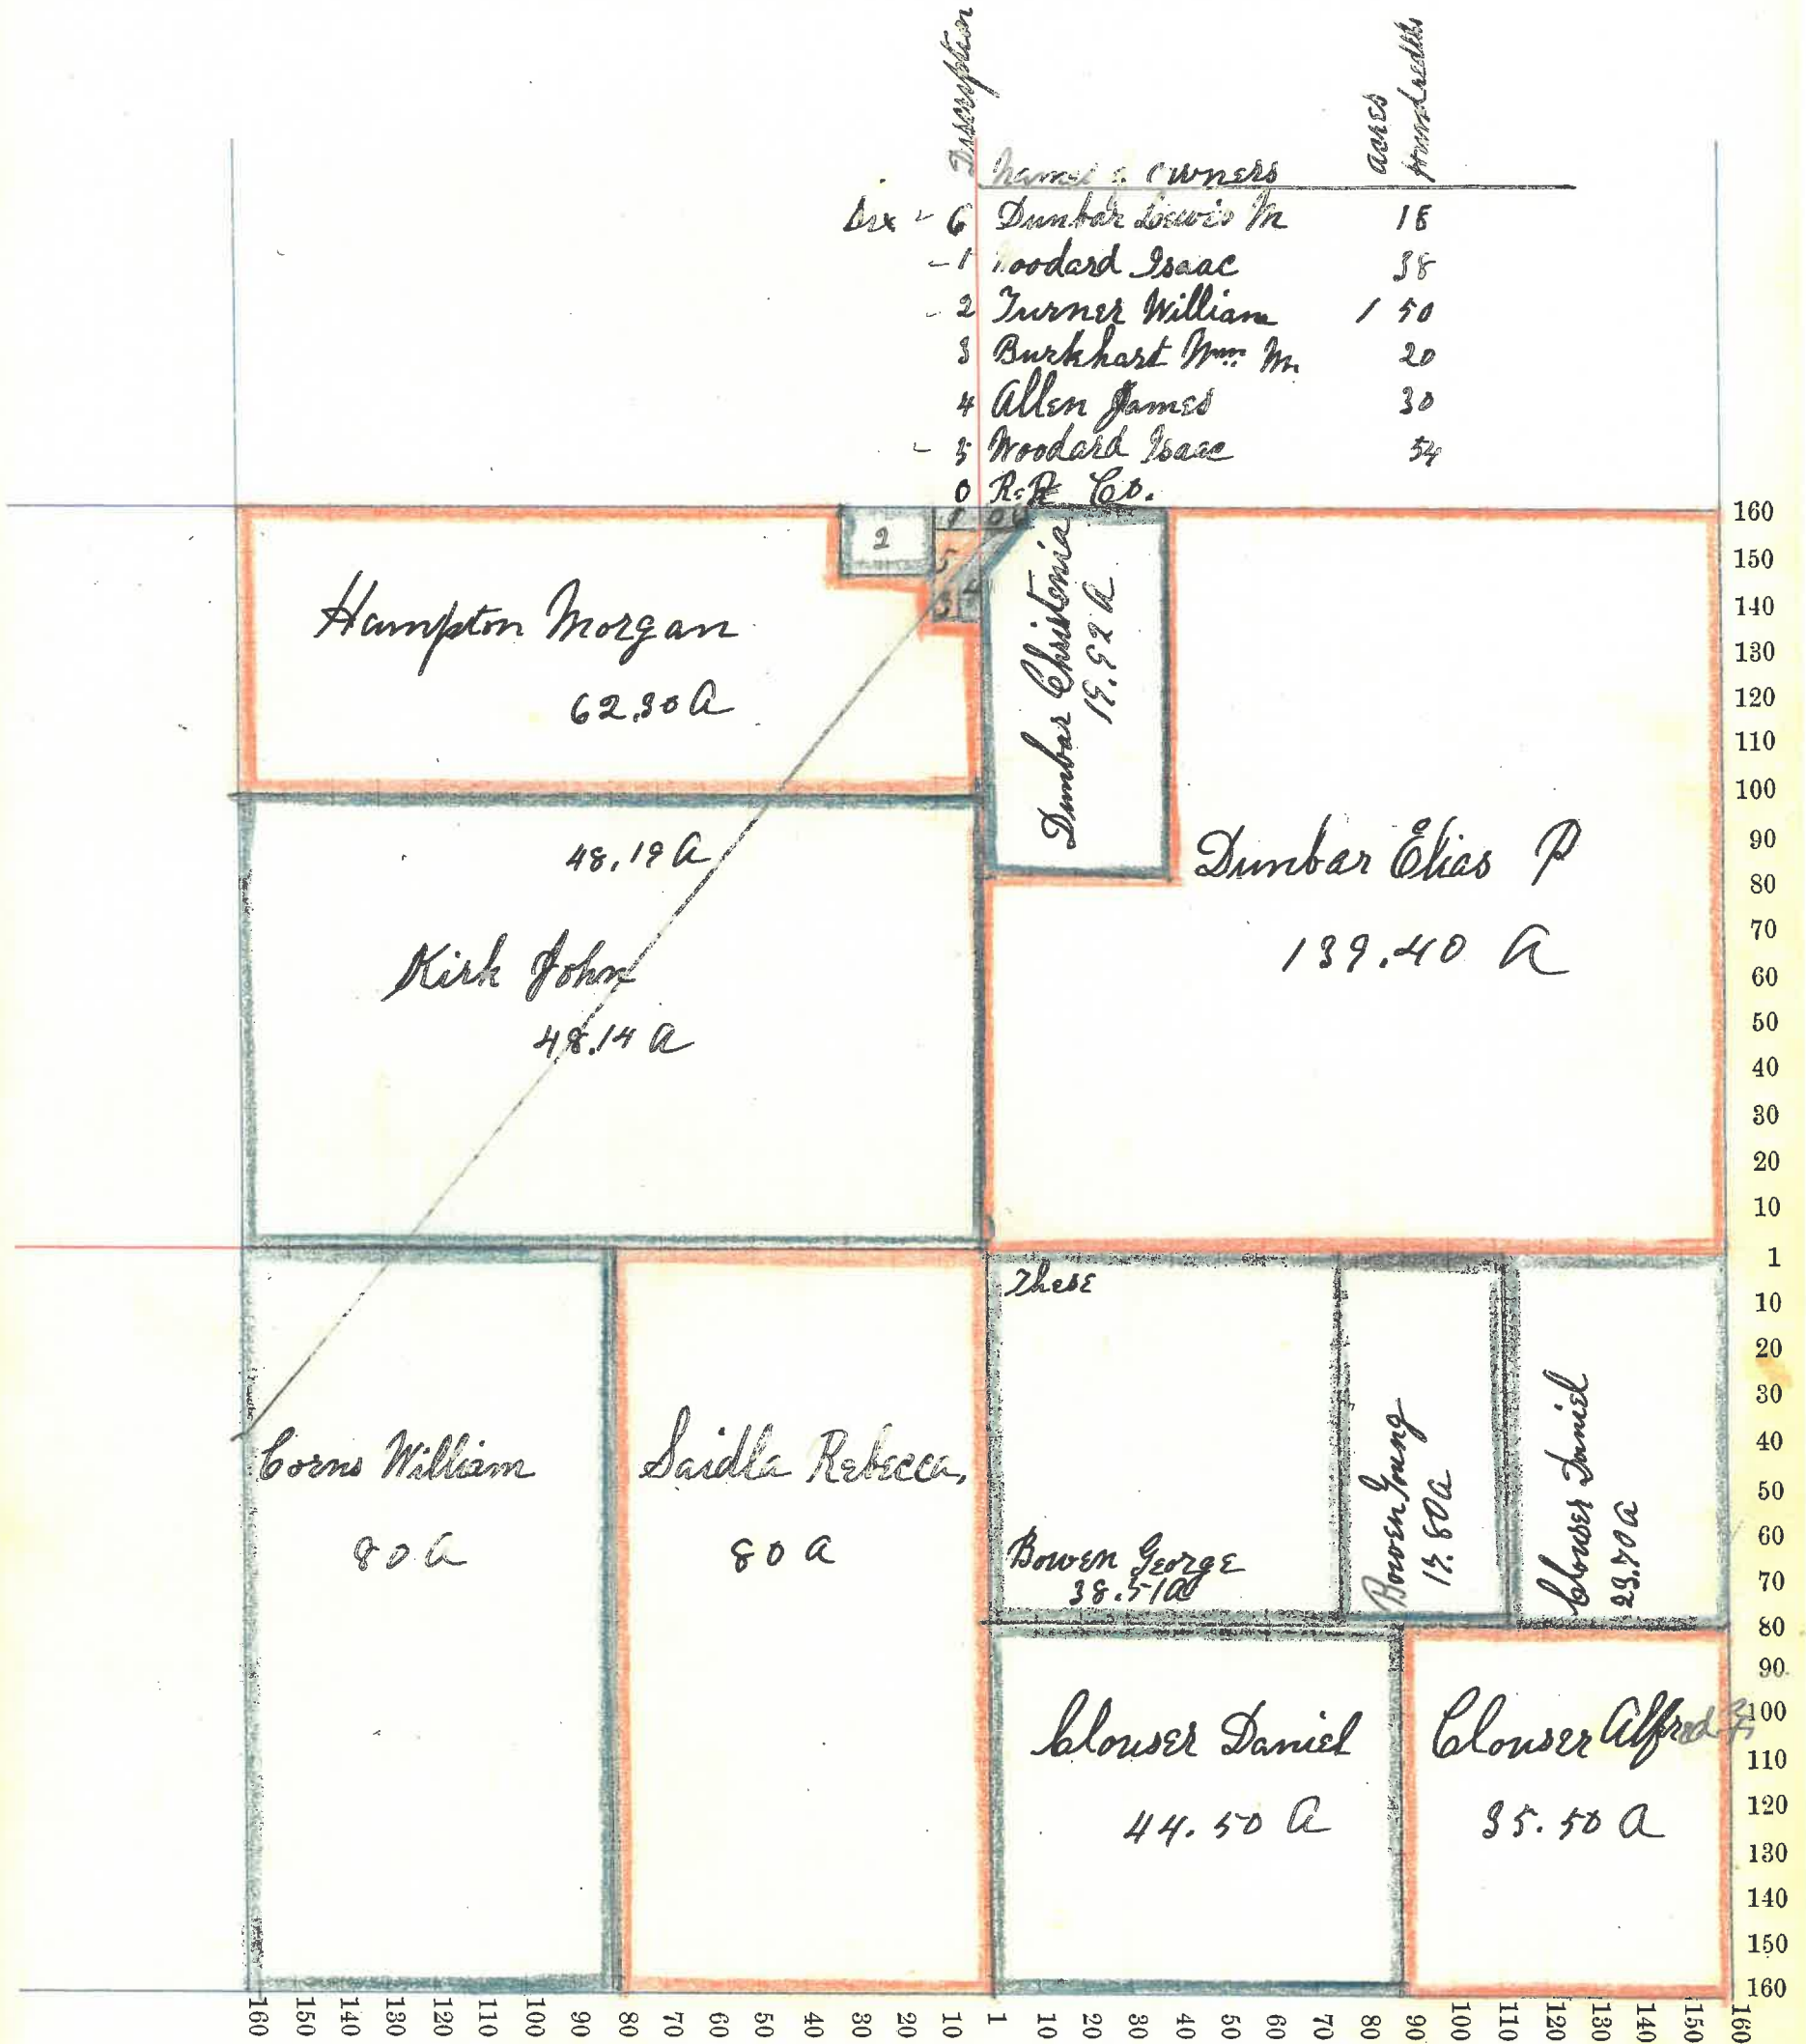 Description
acres
hundredths
Names of owners
Six - 6 Dunbar Lewis M 18
- 1 Woodard Isaac 38
- 2 Turner William 1 50
3 Burkhart Wm M 20
4 Allen James 30
- 5 Woodard Isaac 54
0 R.R Co.
2
1
0 6
5
4
3
Hampton Morgan
62.30 A
Dunbar Christenia
19.92 A
Dunbar Elias P
139.40 A
48.19 A
Kirk John
48.14 A
These
Corns William
80 A
Saidla Rebecca,
80 A
Bowen George
38.51 A
Bowen Young
17.80 A
Clouser Daniel
23.70 A
Clouser Daniel
44.50 A
Clouser Alfred
35.50 A
160
150
140
130
120
110
100
90
80
70
60
50
40
30
20
10
1
10
20
30
40
50
60
70
80
90
100
110
120
130
140
150
160
160 150 140 130 120 110 100 90 80 70 60 50 40 30 20 10 1 10 20 30 40 50 60 70 80 90 100 110 120 130 140 150 160